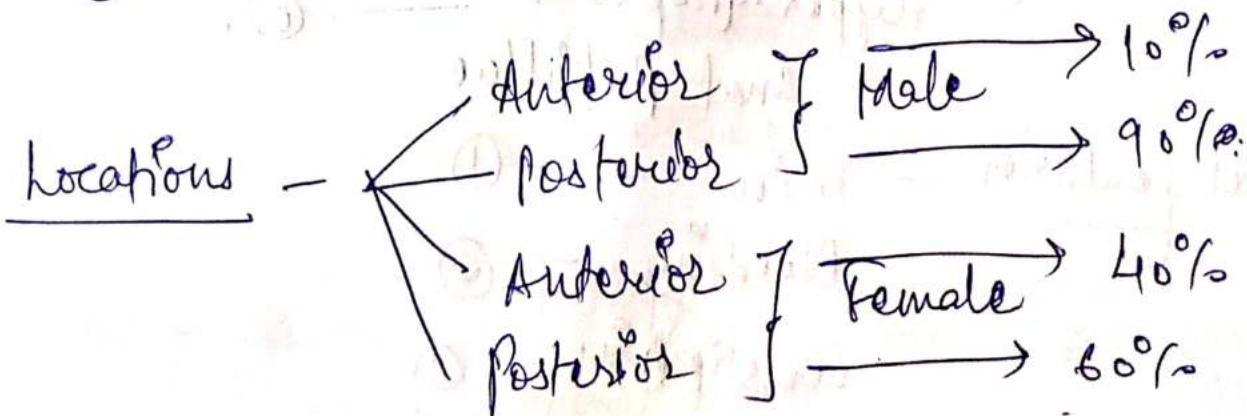 Locations - Anterior } Male → 10%
Posterior → 90%
Anterior } Female → 40%
Posterior → 60%